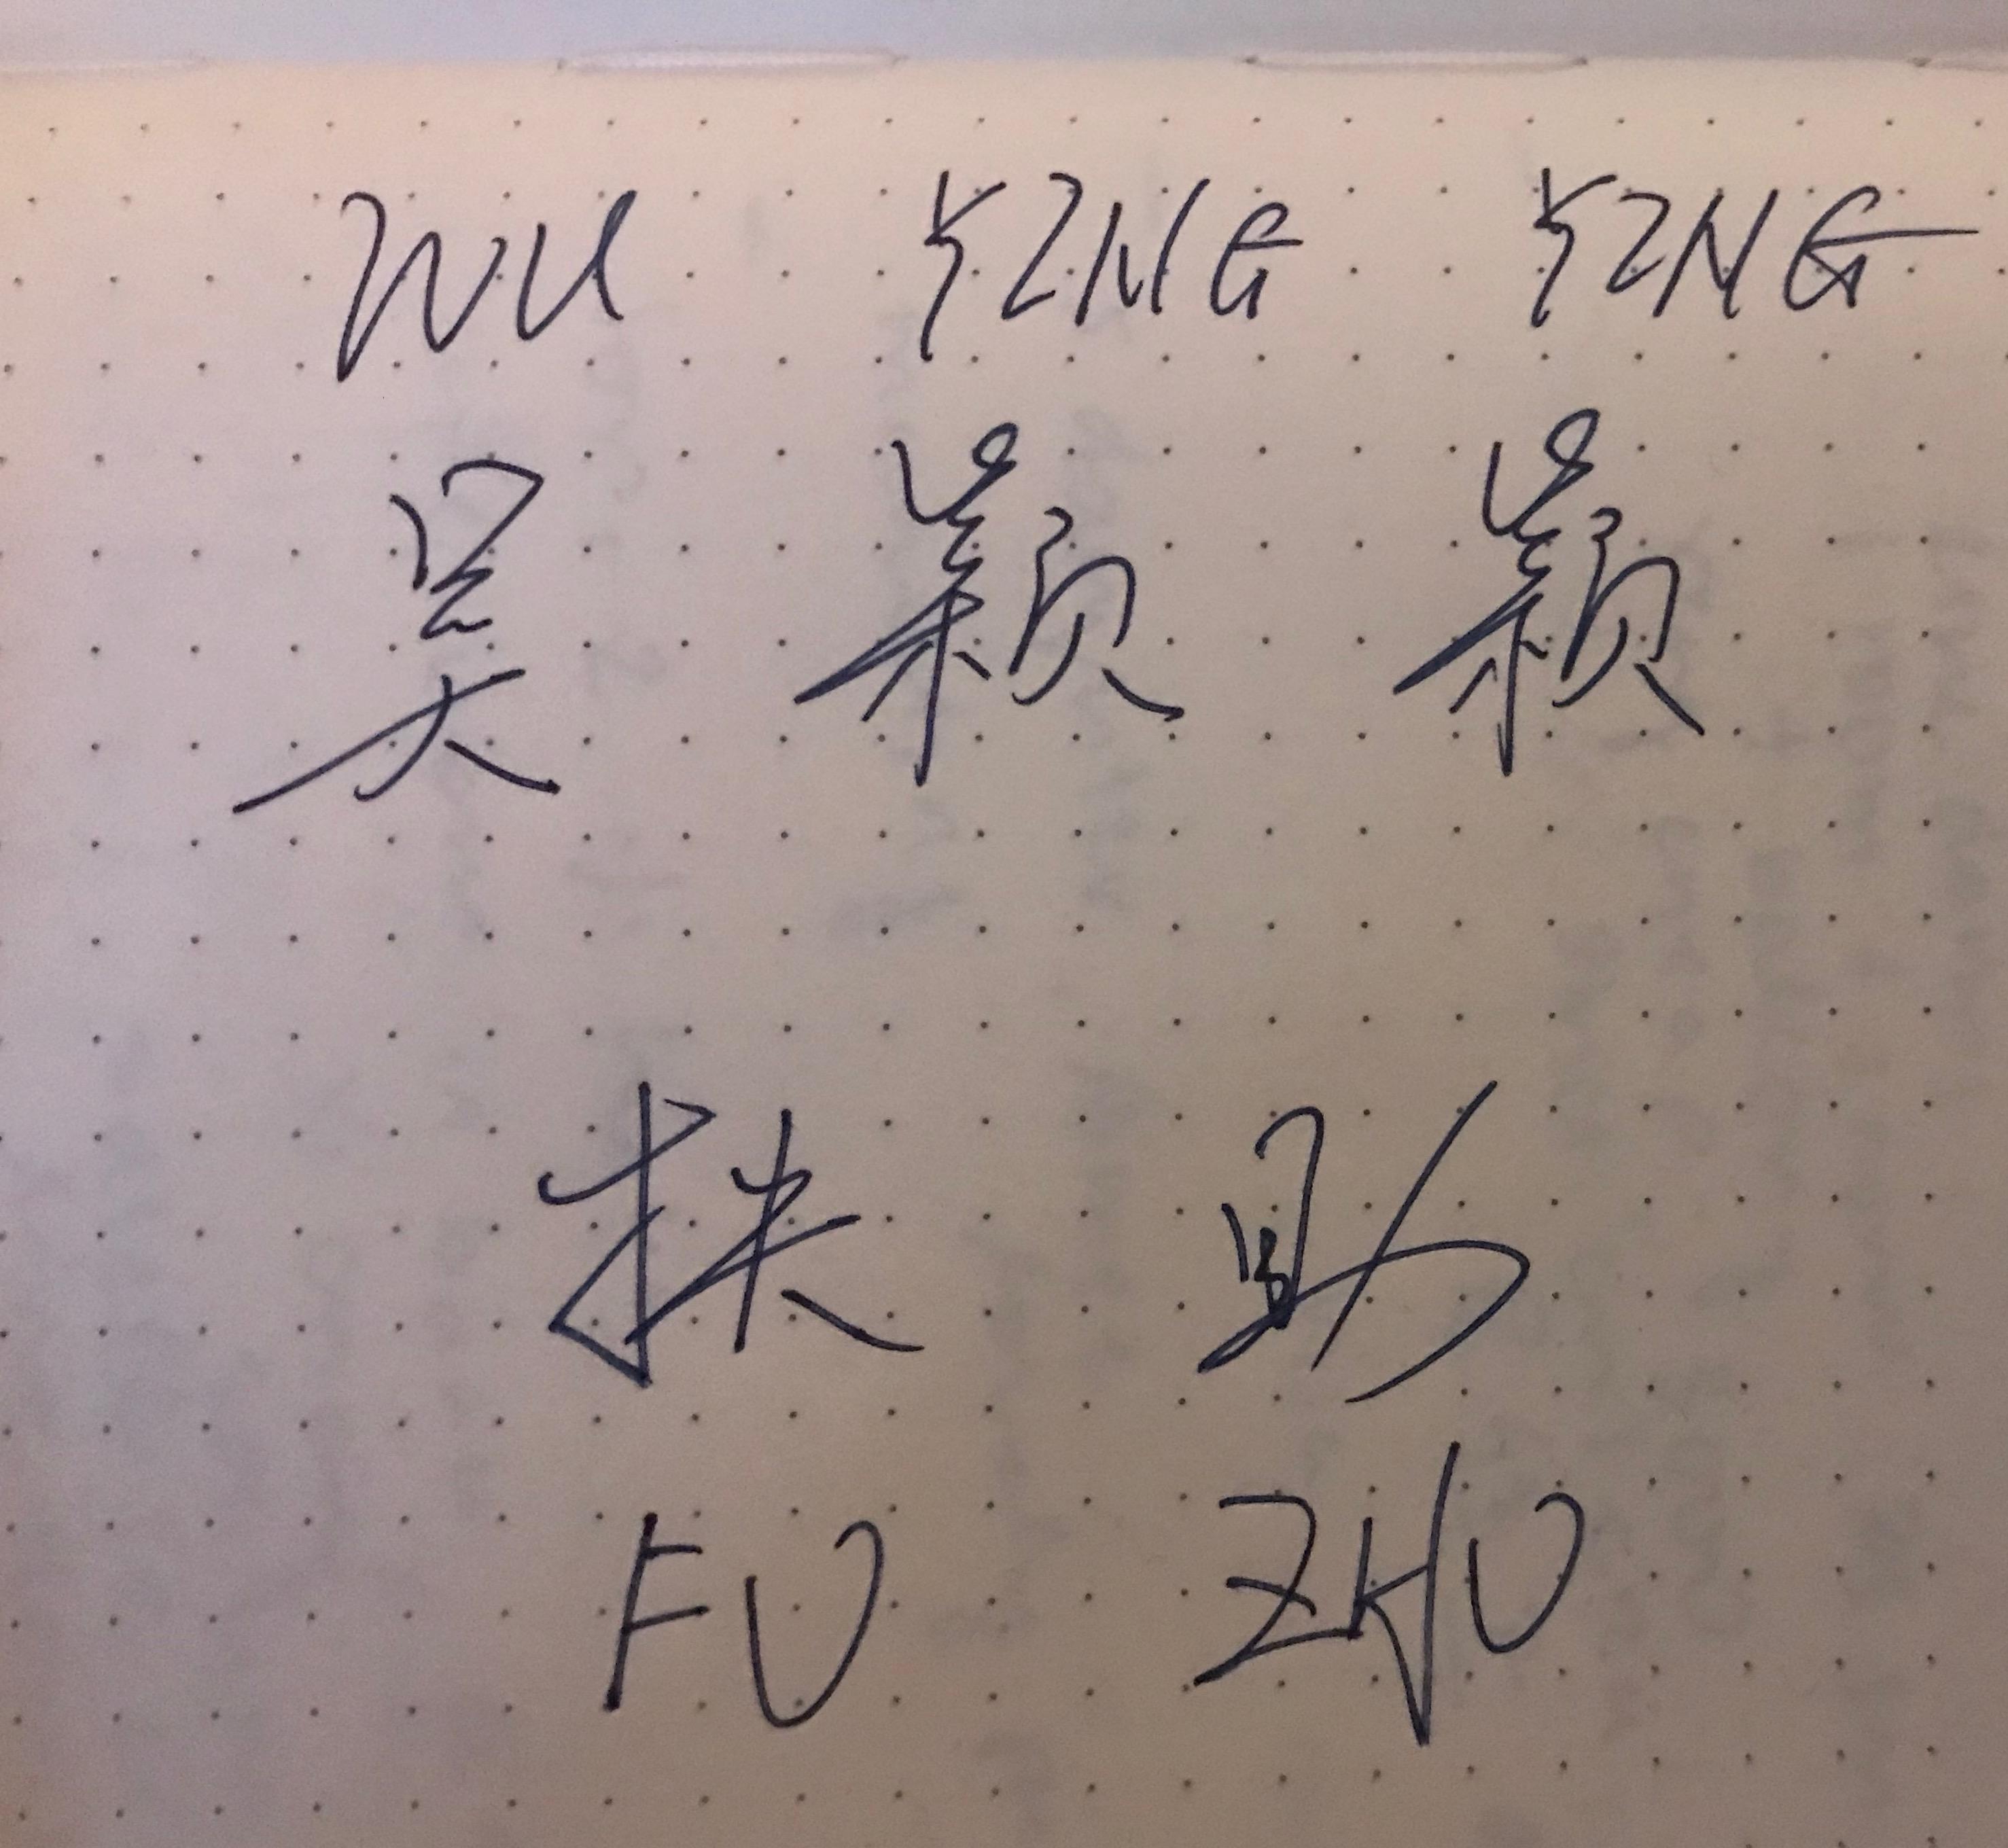 WU YING YING
吴 颖 颖
扶 助
FU ZHU